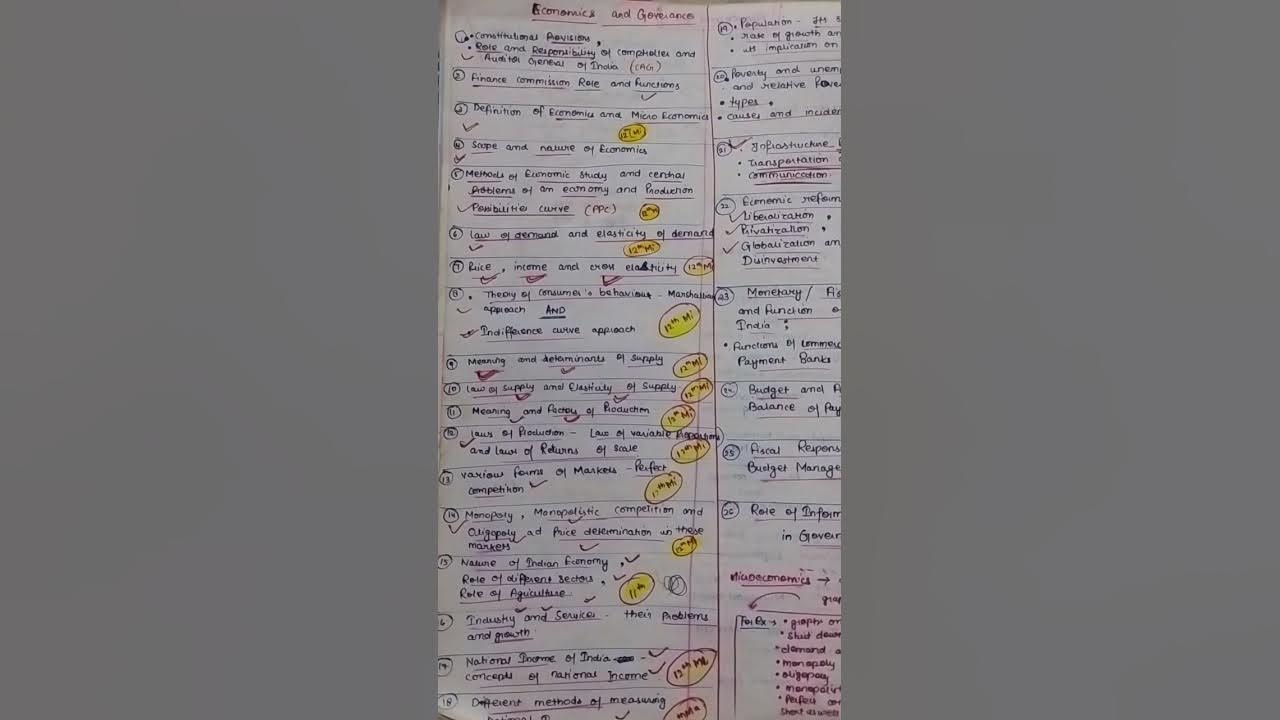 Economics and Goverance
1. • Constitutional Provisions,
• Role and Responsibility of comptroller and
Auditor General of India (CAG)
2 Finance commission Role and functions
3 Definition of Economics and Micro Economics
12th Mi
4 Scope and nature of Economics
5 Methods of Economic study and central
problems of an economy and Production
Possibilities curve (PPC)
12th M
6 Law of demand and elasticity of demand
12th Mi
7 Price, income and cross elasticity 12th Mi
8 • Theory of consumer's behaviour - Marshallian
approach AND
Indifference curve approach
12th Mi
9 Meaning and determinants of supply 12th Mi
10 Law of supply and Elasticity of Supply 12th Mi
11 Meaning and Factors of Production 12th Mi
12 Laws of Production - Law of variable Proportions
and laws of Returns of scale 12th Mi
13 Various forms of Markets - Perfect
competition
12th Mi
14 Monopoly, Monopolistic competition and
Oligopoly ad Price determination in these
markets 12th Mi
15 Nature of Indian Economy,
Role of different sectors,
Role of Agriculture
11th
6 Industry and Services - their Problems
and growth
17 National Income of India -
concepts of national Income
12th Ma
18 Different methods of measuring
19 • Population - Its
• rate of growth an
• its implication on
20 Poverty and unemp
and relative Pover
• types •
• causes and inciden
21 Infrastructure
• Transportation
• communication
22 Economic reform
Liberalization,
Privatization,
Globalization an
Disinvestment
23 Monetary/ Fis
and Function o
India ;
• Functions of commerc
Payment Banks
24 Budget and
Balance of Pay
25 Fiscal Respons
Budget Manage
26 Role of Inform
in Govern
Microeconomics →
grap
For Ex →
• graphs on
• Shut down
• demand a
• monopoly
• oligopoly
• monopolist
• Perfect co